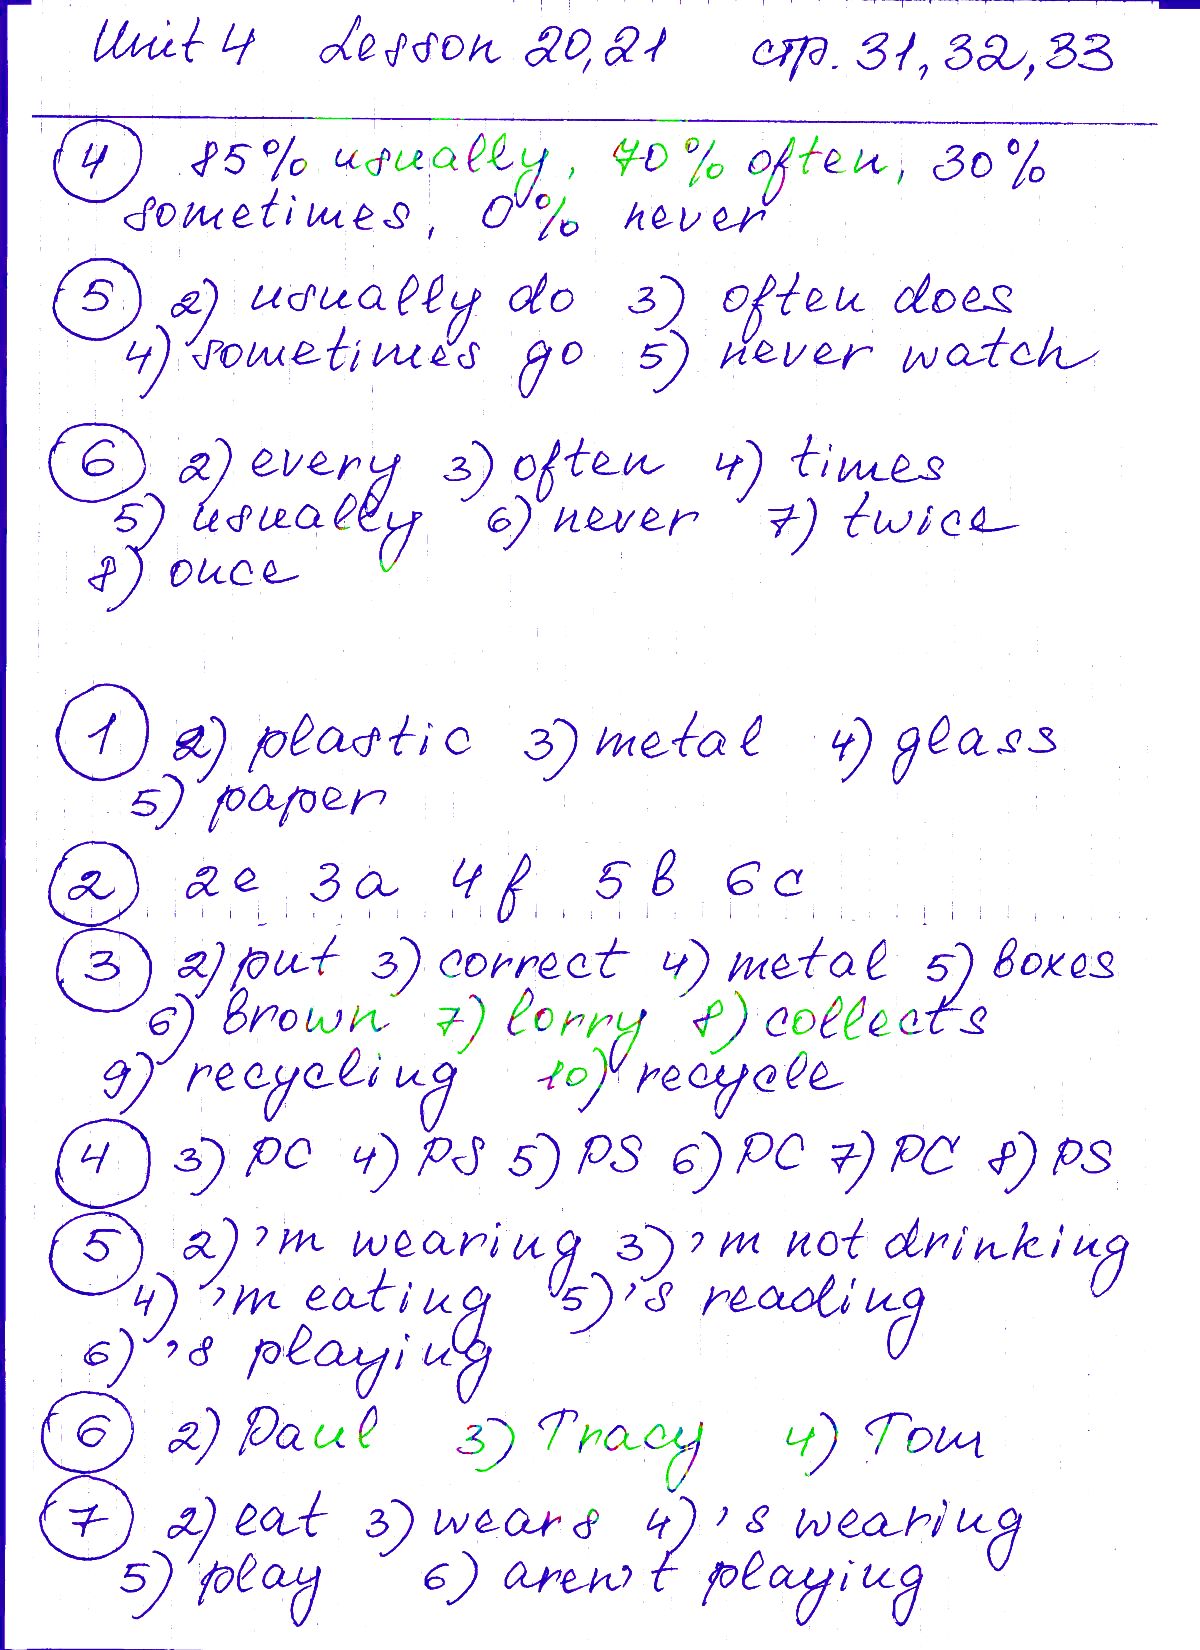 Unit 4 Lesson 20,21 стр. 31, 32, 33
4 85% usually, 70% often, 30%
sometimes, 0% never
5 2) usually do 3) often does
4) sometimes go 5) never watch
6 2) every 3) often 4) times
5) usually 6) never 7) twice
8) once
1 2) plastic 3) metal 4) glass
5) paper
2 2e 3a 4f 5b 6c
3 2) put 3) correct 4) metal 5) boxes
6) brown 7) lorry 8) collects
9) recycling 10) recycle
4 3) PC 4) PS 5) PS 6) PC 7) PC 8) PS
5 2) 'm wearing 3) 'm not drinking
4) 'm eating 5) 's reading
6) 's playing
6 2) Paul 3) Tracy 4) Tom
7 2) eat 3) wears 4) 's wearing
5) play 6) aren't playing